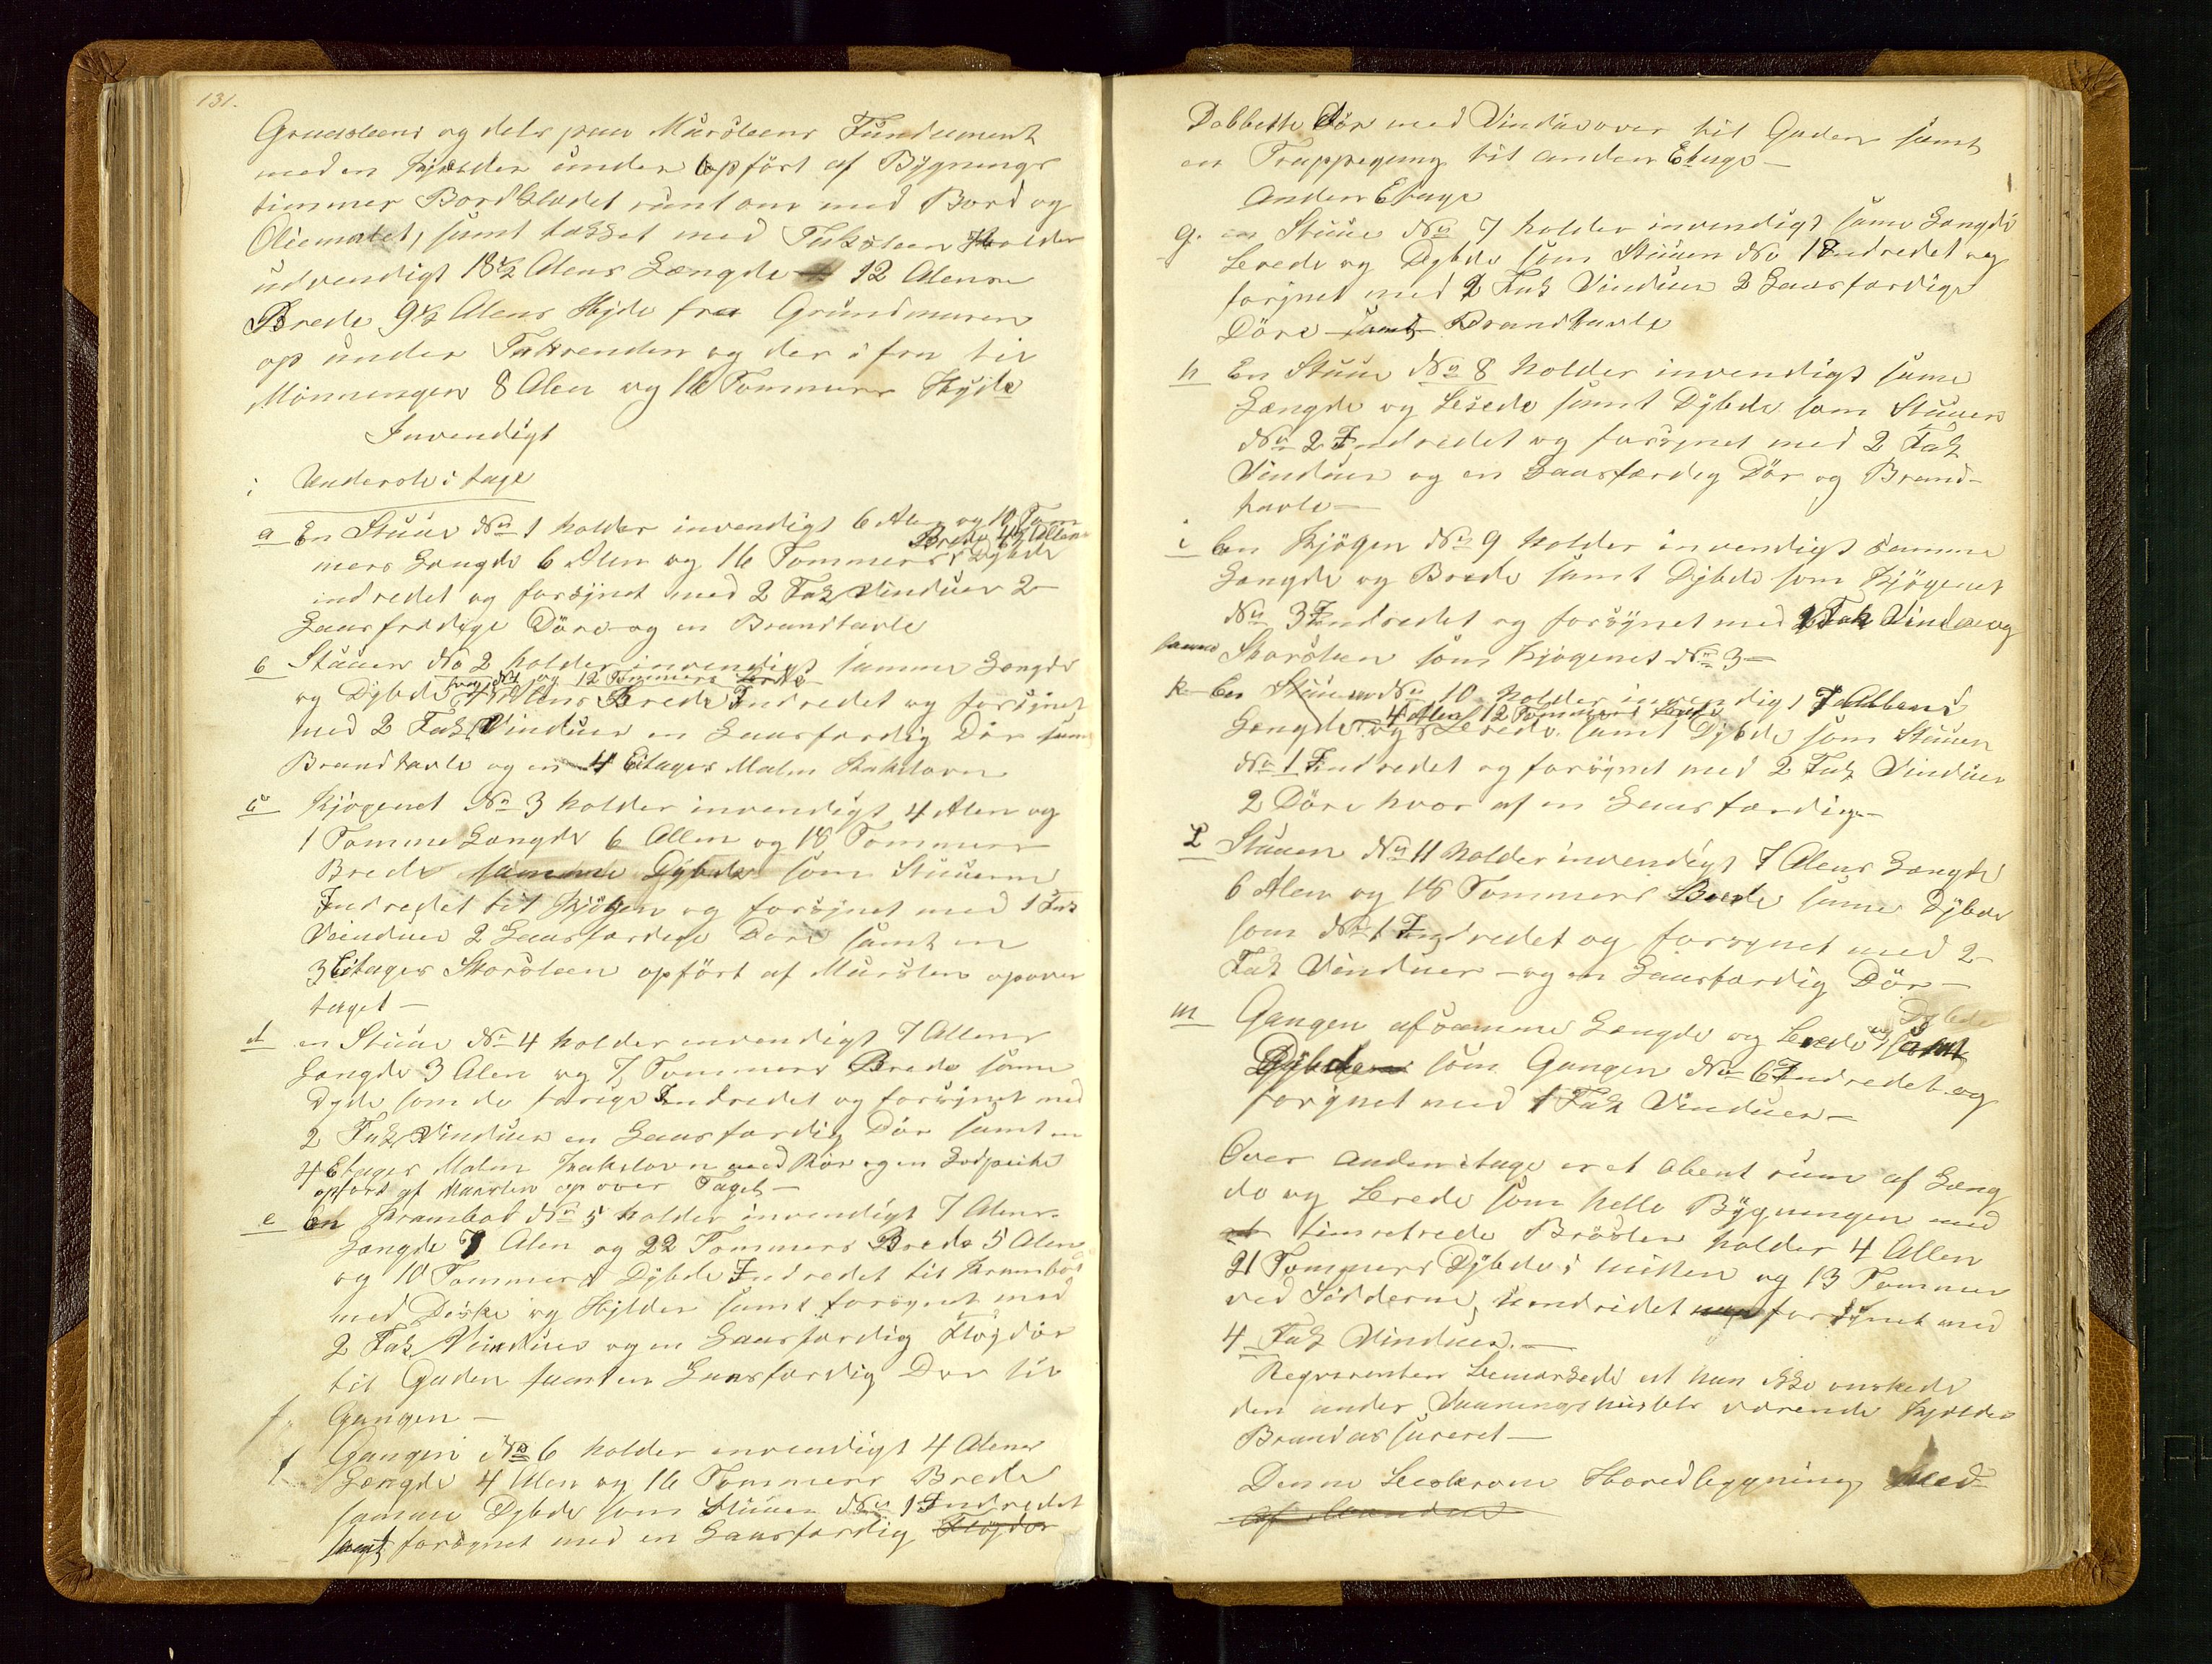 131.
Graasteens og dels paa Mursteens Fundament
med en Kjelder under Opført af Bygnings
timmer Bordklædet runt om med Bord og
Oliemalet, samt takket med Taksteen Holder
udvendigt 18½ Alens Længde 12 Alens
Brede 9½ Alens Høyde fra Grundmuren
op under Takrenden og der i fra til
Mønningen 8 Alen og 16 Tommers Høyde
Invendigt
i Underste etage
a En Stuue No 1 holder invendigt 6 Alen og 10 Tom
mers Længde 6 Alen og 16 Tommers Brede 4½ Allens Dybde
indredet og forsynet med 2 Fak Vinduer 2
Laasfærdige Døre og en Brandtavle
b Stuuen No 2 holder invendigt samme Længde
og Dybde som No 1 og 12 Tommers Brede Indredet og forsynet
med 2 Fak Vinduer en Laasfærdig Dør samt
Brandtavle og en 4 Etages Malm Kakelovn
c Kjøgenet No 3 holder invendigt 4 Alen og
1 Tomme Længde 6 Allen og 18 Tommers
Brede samme Dybde som Stuuerne
Indredet til Kjøgen og forsynet med 1 Fak
Vinduer 2 Laasfærdige Døre samt en
3 Etages Skorsteen opført af Mursten op over
taget —
d en Stuue No 4 holder invendigt 7 Allens
Længde 3 Alen og 7 Tommers Brede samme
Dyde som de forige Indredet og forsynet med
2 Fak Vinduer en Laasfærdig Dør samt en
4 Etages Malm Kakelovn med Rør og en
opført af Mursten op over Taget —
e En Krambod No 5 holder invendigt 7 Alens
Længde 7 Alen og 22 Tommers Brede 5 Alen
og 10 Tommers Dybde Indredet til Krambod
med Diske og Hylder samt forsynet med
2 Fak Vinduer og en Laasfærdig Fløjdør
til Gaden samt en Laasfærdig Dør til
f. Gangen —
f Gangen No 6 holder invendigt 4 Alens
Længde 4 Alen og 16 Tommers Brede
samme Dybde som Stuuen No 1 Indredet
samt forsynet med en Laasfærdig Fløjdør
Dobbelte Dør med Vindue over til Gaden samt
en Trappegang til anden Etage —
Anden Etage
g. en Stuue No 7 holder invendigt same Længde
Brede og Dybde som Stuuen No 1 Indredet og
forsynet med 2 Fak Vinduer 2 Laasfærdige
Døre samt Brandtavle
h En Stuue No 8 holder invendigt same
Længde og Brede samt Dybde som Stuuen
No 2 Indredet og forsynet med 2 Fak
Vinduer og en Laasfærdig Dør og Brand-
tavle —
i En Kjøgen No 9 holder invendigt samme
Længde og Brede samt Dybde som Kjøgenet
No 3 Indredet og forsynet med 2 Fak Vinduer og
samme Skorsteen som Kjøgenet No 3 —
k En Stuuen No 10 holder invendigt 7 Allens
Længde og 4 Alen 12 Tommers Brede samt Dybde som Stuuen
No 1 Indredet og forsynet med 2 Fak Vinduer
2 Døre hvor af en Laasfærdig —
L Stuuen No 11 holder invendigt 7 Alens Længde
6 Alen og 18 Tommers Brede same Dybde
som No 1 Indredet og forsynet med 2
Fak Vinduer — og en Laasfærdig Dør —
m Gangen af samme Længde og Brede og Dybde samt
Dybden som Gangen No 6 Indredet og
forsynet med 1 Fak Vinduer —
Over anden etage er et abent rum af Læng
de og Brede som helle Bygningen med
et timretrede Brøsten holder 4 Allen
21 Tommers Dybde i mitten og 13 Tommer
ved Sidderne, uindredet forsynet med
4 Fak Vinduer. —
Reqvirenten Bemærkede at han ikke ønskede
den under Vaaningshuset værende Kjelder
Brandassureret —
Denne Beskrevne Hovedbygning